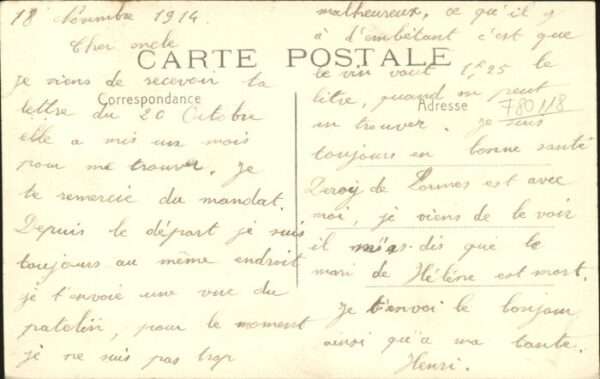 18 Novembre 1914
Cher oncle
CARTE POSTALE
Correspondance
Je viens de recevoir ta
lettre du 20 Octobre
elle a mis un mois
pour me trouver. Je
te remercie du mandat.
Depuis le départ je suis
toujours au même endroit
je t'envoie une vue du
patelin, pour le moment
je ne suis pas trop
malheureux, ce qu'il y
à d'embêtant c'est que
le vin vaut 1f25 le
litre, quand on peut
Adresse
780118
en trouver. Je suis
toujours en bonne santé
de Lormes est avec
moi, je viens de le voir
il m'as dis que le
mari de Hélène est mort.
Je t'envoi le bonjour
ainsi qu'a ma tante.
Henri.